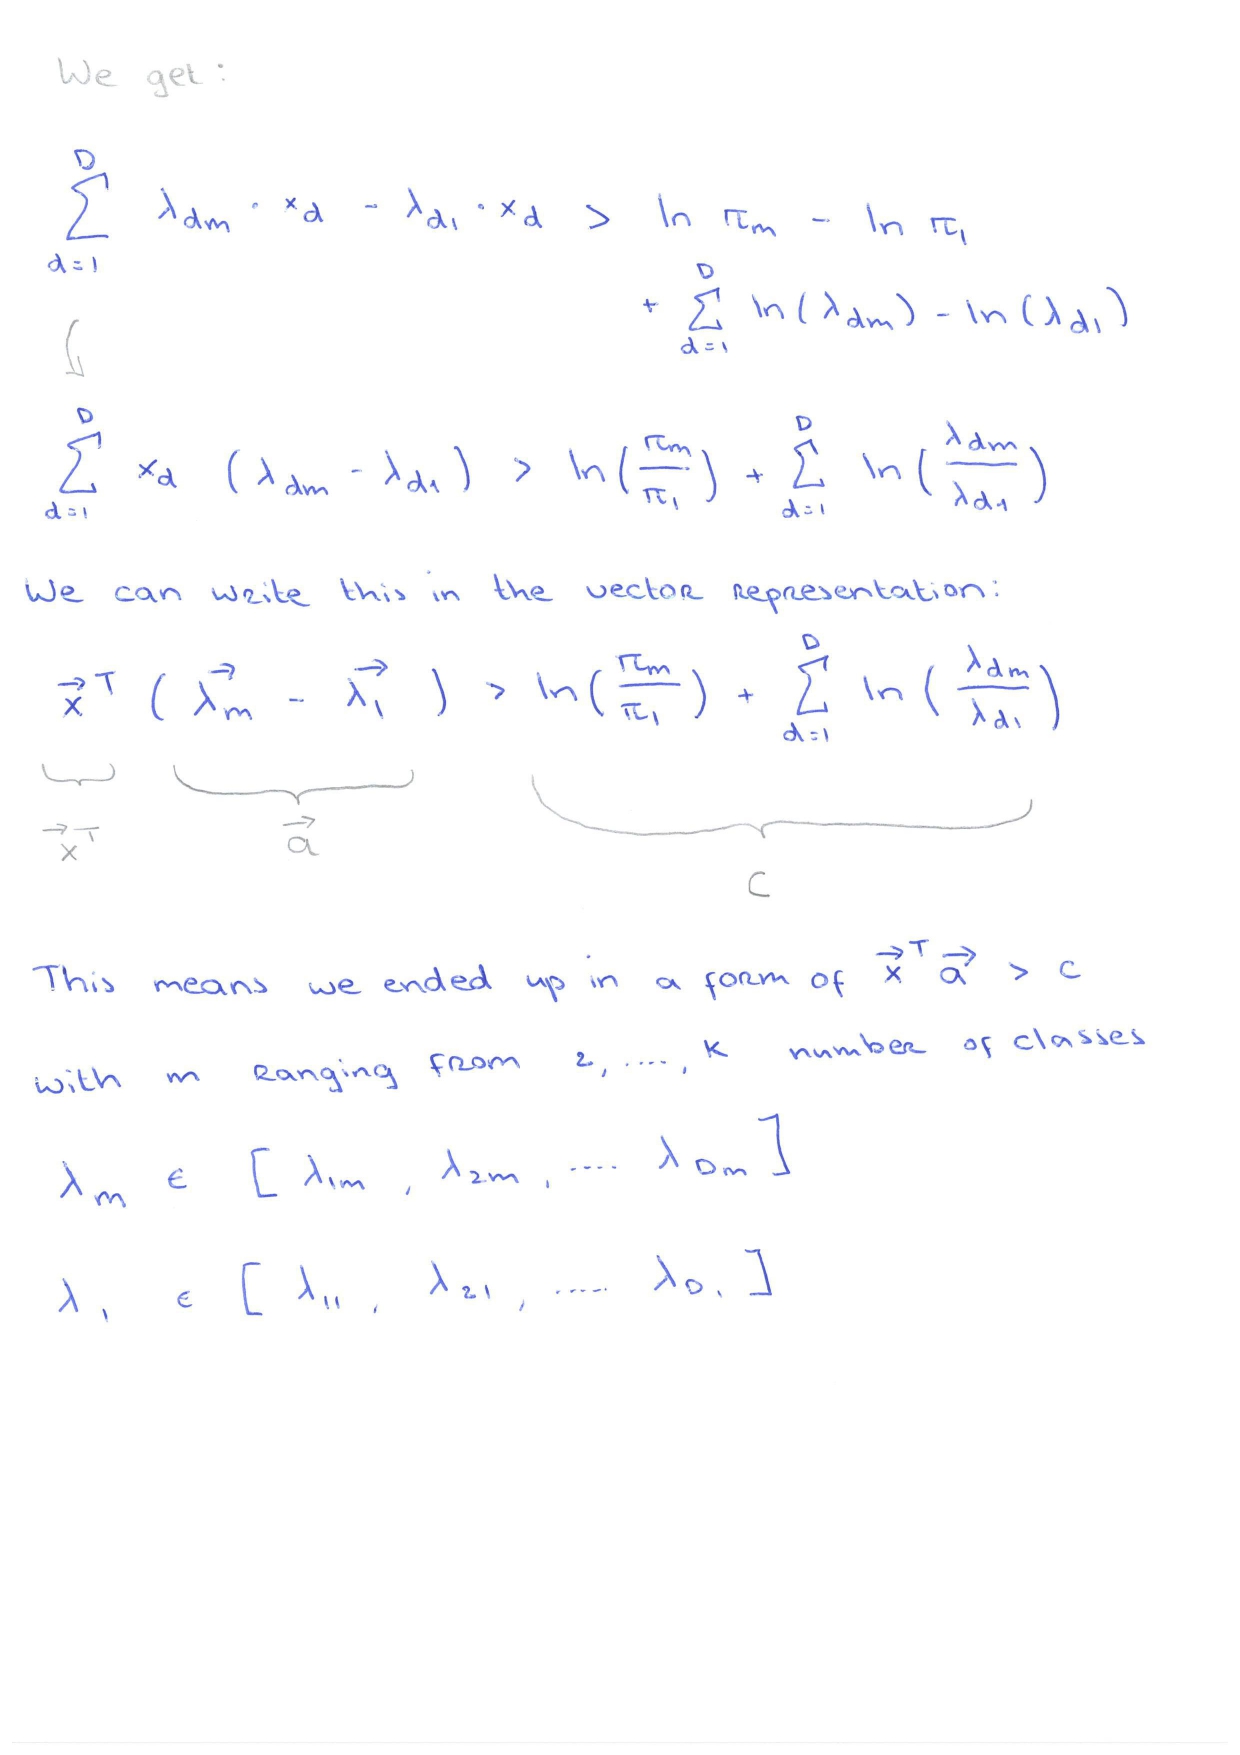 We get:
D
∑ λdm · xd - λd1 · xd > ln πm - ln π1
d=1
D
+ ∑ ln(λdm) - ln(λd1)
d=1
D D
∑ xd (λdm - λd1) > ln(πm/π1) + ∑ ln(λdm/λd1)
d=1 d=1
We can write this in the vector representation:
D
x⃗ᵀ (λ⃗m - λ⃗1) > ln(πm/π1) + ∑ ln(λdm/λd1)
d=1
x⃗ᵀ a⃗
c
This means we ended up in a form of x⃗ᵀ a⃗ > c
with m ranging from 2, ...., K number of classes
λm ∈ [λ1m, λ2m, .... λDm]
λ1 ∈ [λ11, λ21, ..... λD1]